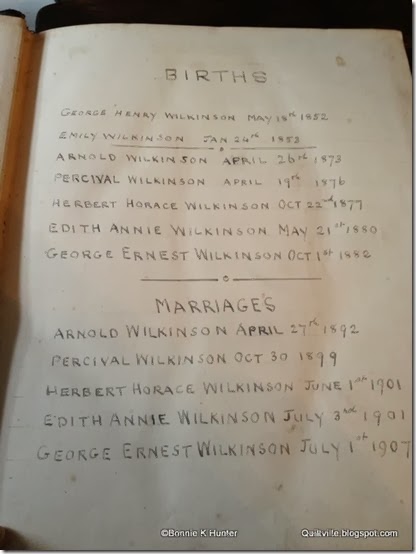 BIRTHS
GEORGE HENRY WILKINSON MAY 18th 1852
EMILY WILKINSON JAN 24th 1853
ARNOLD WILKINSON APRIL 26th 1873
PERCIVAL WILKINSON APRIL 19th 1876
HERBERT HORACE WILKINSON OCT 22nd 1877
EDITH ANNIE WILKINSON MAY 21st 1880
GEORGE ERNEST WILKINSON OCT 1st 1882
MARRIAGES
ARNOLD WILKINSON APRIL 27th 1892
PERCIVAL WILKINSON OCT 30 1899
HERBERT HORACE WILKINSON JUNE 1st 1901
EDITH ANNIE WILKINSON JULY 3rd 1901
GEORGE ERNEST WILKINSON JULY 1st 1907
©Bonnie K Hunter Quiltville.blogspot.com